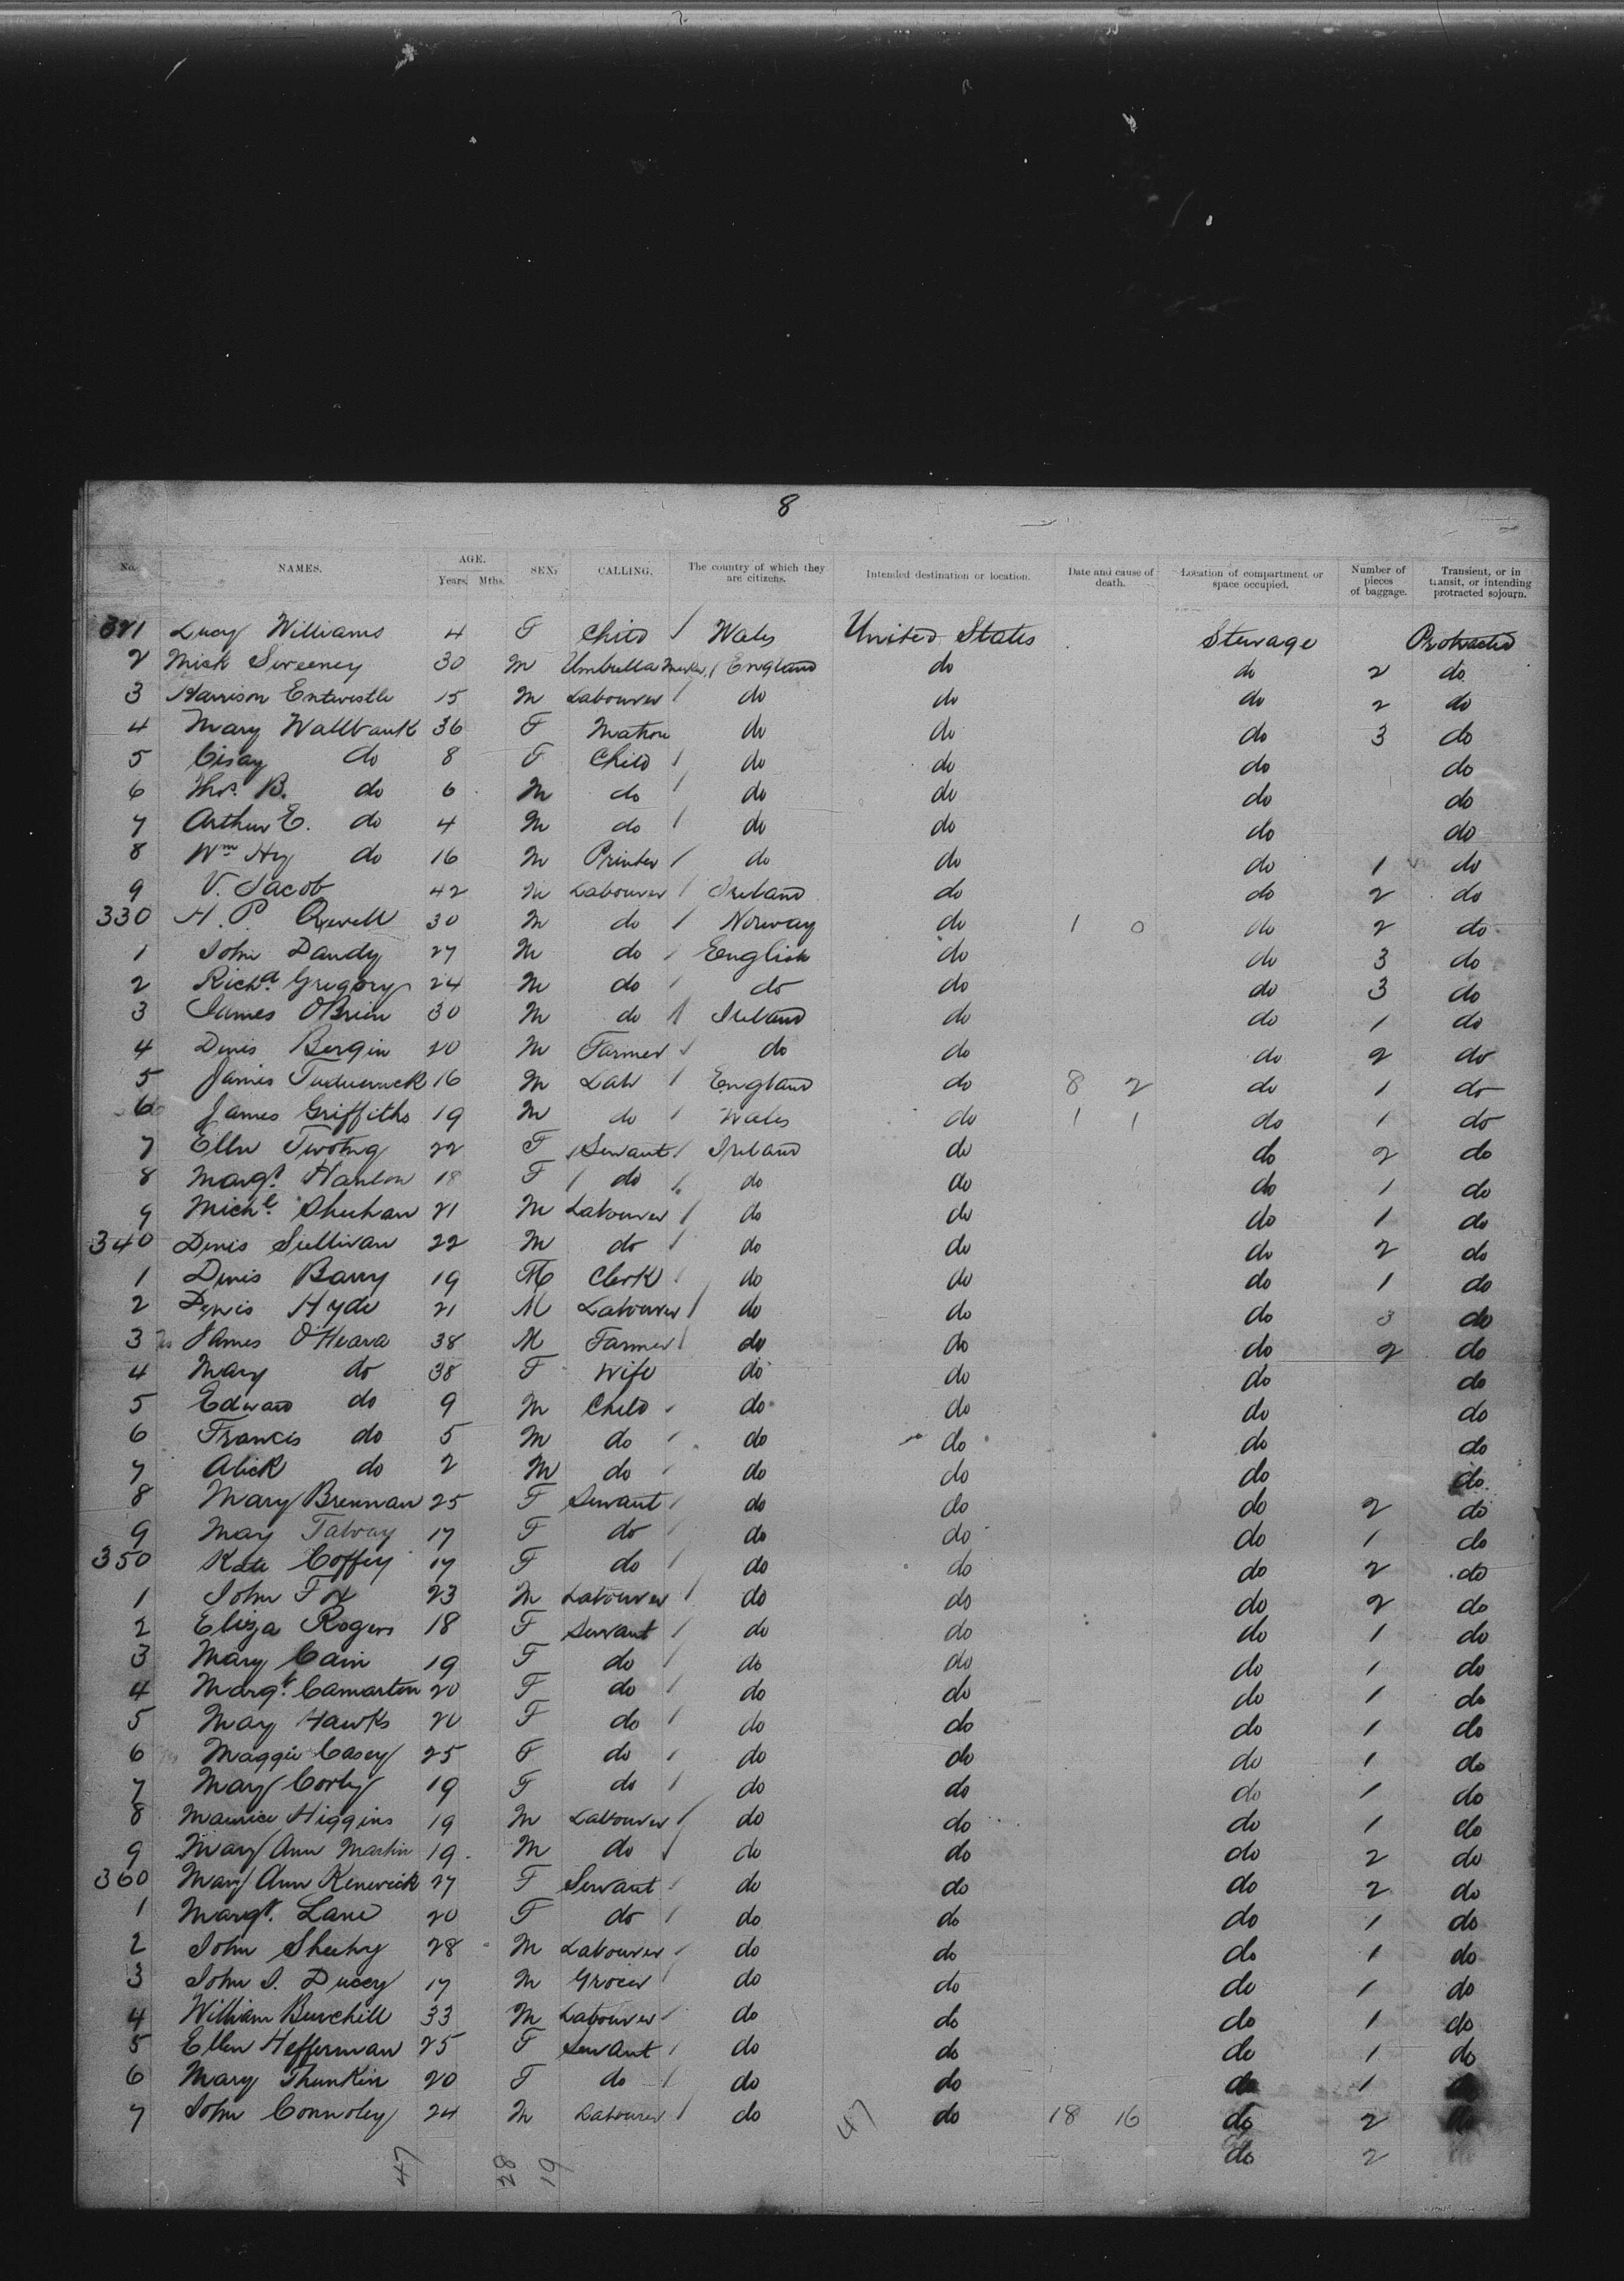 8
No. NAMES. AGE. Years. Mths. SEX. CALLING. The country of which they are citizens. Intended destination or location. Date and cause of death. Location of compartment or space occupied. Number of pieces of baggage. Transient, or in transit, or intending protracted sojourn.
321 Lucy Williams 4 F Child / Wales United States Steerage Protracted
2 Mick Sweeney 30 M Umbrella Maker / England do do 2 do
3 Harrison Entwistle 15 M Labourer / do do do 2 do
4 Mary Wallbank 36 F Matron do do do 3 do
5 Cisay do 8 F Child / do do do do
6 Thos. B. do 6 M do / do do do do
7 Arthur E. do 4 M do / do do do do
8 Wm Hy do 16 M Printer / do do do 1 do
9 V. Jacob 42 M Labourer / Ireland do do 2 do
330 H. P. 30 M do / Norway do 1 0 do 2 do
1 John Dandy 27 M do / English do do 3 do
2 Richd. Gregory 24 M do / do do do 3 do
3 James OBrien 30 M do / Ireland do do 1 do
4 Denis Bergin 20 M Farmer / do do do 2 do
5 James 16 M Lab / England do 8 2 do 1 do
6 James Griffiths 19 M do / Wales do 1 1 do 1 do
7 Ellen Twomg 22 F / Servant / Ireland do do 2 do
8 Margt. Hanlon 18 F / do / do do do 1 do
9 Michl. Sheehan 21 M Labourer / do do do 1 do
340 Denis Sullivan 22 M do / do do do 2 do
1 Denis Barry 19 M Clerk / do do do 1 do
2 Denis Hyde 21 M Labourer / do do do 3 do
3 James O'Meara 38 M Farmer / do do do 2 do
4 Mary do 38 F Wife do do do do
5 Edward do 9 M Child / do do do do
6 Francis do 5 M do / do do do do
7 Alick do 2 M do / do do do do
8 Mary Brennan 25 F Servant / do do do 2 do
9 May Talvay 17 F do / do do do 1 do
350 Kate Coffey 17 F do / do do do 2 do
1 John Fox 23 M Labourer / do do do 2 do
2 Eliza Rogers 18 F Servant / do do do 1 do
3 Mary Cain 19 F do / do do do 1 do
4 Margt. Camarton 20 F do / do do do 1 do
5 May Hawks 20 F do / do do do 1 do
6 Maggie Casey 25 F do / do do do 1 do
7 Mary Corby 19 F do / do do do 1 do
8 Maurice Higgins 19 M Labourer / do do do 1 do
9 Mary Ann Martin 19 M do / do do do 2 do
360 Mary Ann Kenerick 27 F Servant / do do do 2 do
1 Margt. Lane 20 F do / do do do 1 do
2 John Sheehy 28 M Labourer / do do do 1 do
3 John J. Ducey 17 M Grocer / do do do 1 do
4 William Burchill 33 M Labourer / do do do 1 do
5 Ellen Hefferman 25 F Servant / do do do 1 do
6 Mary Thunkin 20 F do / do do do 1 do
7 John Connoley 24 M Labourer / do 47 do 18 16 do 2 do
47 28 19 do 2 do